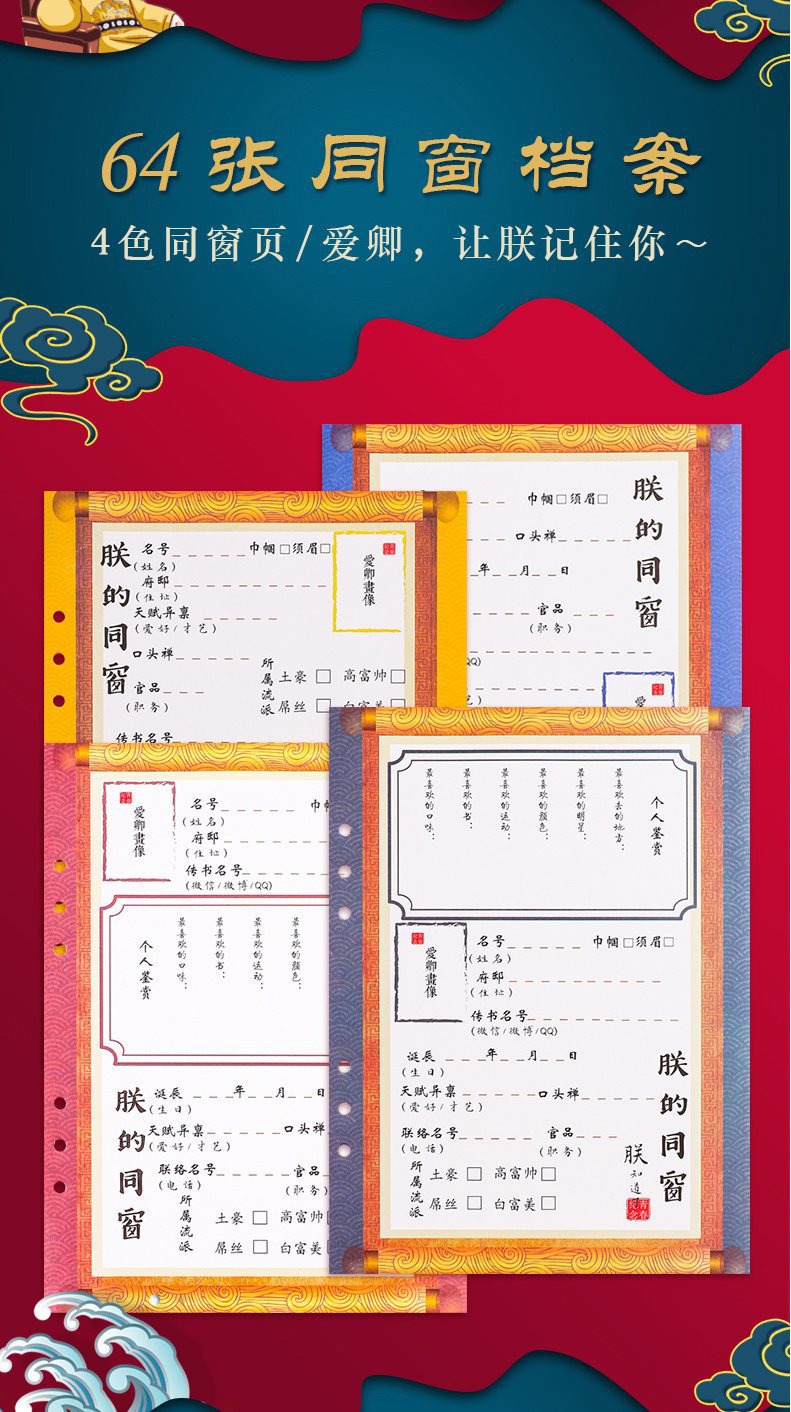 64张同窗档案
4色同窗页/爱卿，让朕记住你～
朕的同窗
巾帼□须眉□
口头禅
年 月 日
官品
(职务)
QQ)
爱
朕的同窗
名号
(姓名)
巾帼□须眉□
府邸
(住址)
天赋异禀
(爱好/才艺)
口头禅
官品
(职务)
传书名号
愛卿畫像
所属流派
土豪□ 高富帅□
屌丝□ 白富美□
愛卿畫像
名号
(姓名)
巾帼
府邸
(住址)
传书名号
(微信/微博/QQ)
最喜欢的颜色：
最喜欢的运动：
最喜欢的书：
最喜欢的口味：
个人鉴赏
朕的同窗
诞辰 年 月 日
(生日)
天赋异禀 口头禅
(爱好/才艺)
联络名号 官品
(电话) (职务)
所属流派
土豪□ 高富帅□
屌丝□ 白富美
个人鉴赏
最喜欢去的地方：
最喜欢的明星：
最喜欢的颜色：
最喜欢的运动：
最喜欢的书：
最喜欢的口味：
愛卿畫像
名号 巾帼□须眉□
(姓名)
府邸
(住址)
传书名号
(微信/微博/QQ)
诞辰 年 月 日
(生日)
天赋异禀 口头禅
(爱好/才艺)
联络名号 官品
(电话) (职务)
所属流派
土豪□ 高富帅□
屌丝□ 白富美□
朕知道
朕的同窗